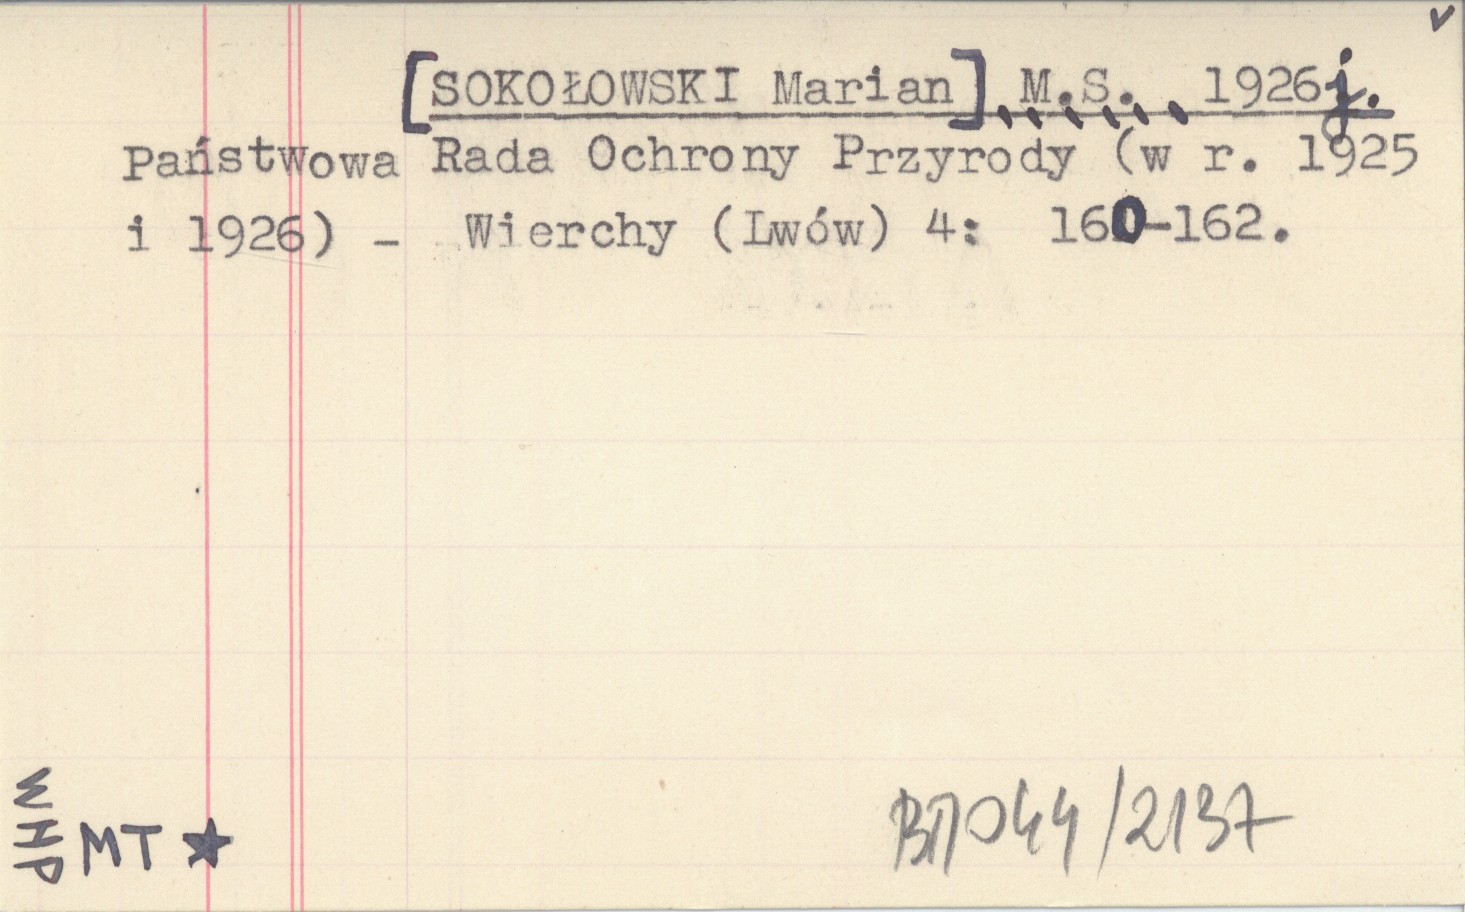 [SOKOŁOWSKI Marian] M.S. 1926j.
Państwowa Rada Ochrony Przyrody (w r. 1925
i 1926) - Wierchy (Lwów) 4: 160-162.
WHP
MT ★
/2137